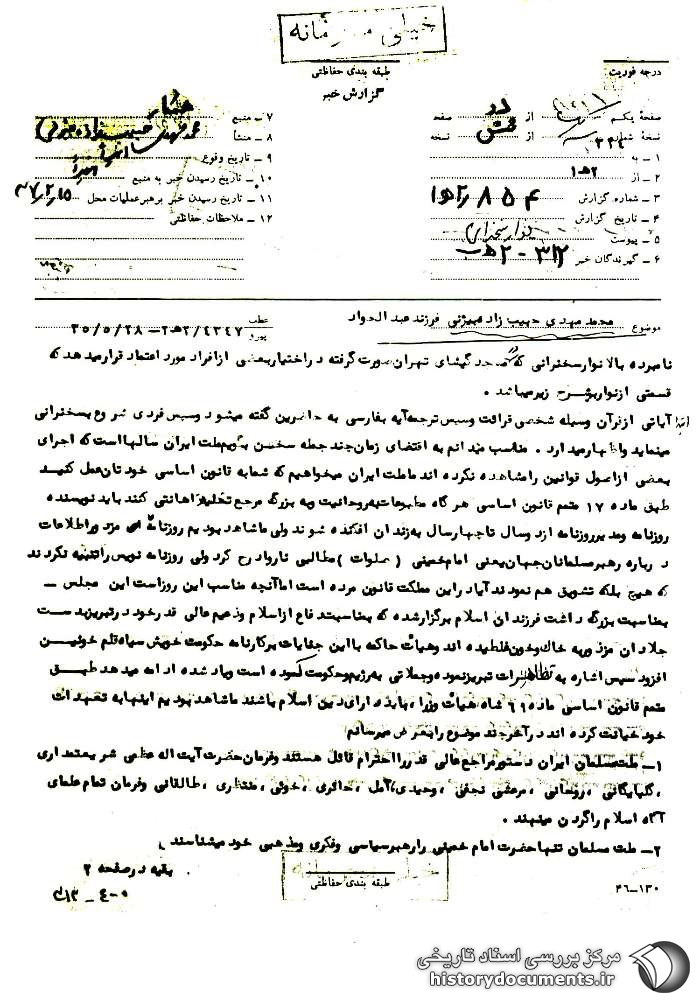 خیلی محرمانه
درجه فوریت
طبقه بندی حفاظتی
گزارش خبر
صفحهٔ یکم از دو صفحه
نسخهٔ شماره از نسخه
۱ ـ به ۳۳۴
۲ ـ از ۲ه۱
۳ ـ شماره گزارش
۴ ـ تاریخ گزارش
۵ ـ پیوست نوار سخنرانی
۶ ـ گیرندگان خبر ۳۱۲
۷ ـ منبع
۸ ـ منشأ
۹ ـ تاریخ وقوع
۱۰ ـ تاریخ رسیدن خبر به منبع
۱۱ ـ تاریخ رسیدن خبر برهبر عملیات محل ۳۷٫۲٫۱۵
۱۲ ـ ملاحظات حفاظتی
موضوع محمد مهدی حبیب زاده فرزند عبدالجواد
عطف
پیرو ۲ه۲/۴۳۴۷ – ۳۵/۵/۲۸
نامبرده بالا نوار سخنرانی که در مسجد گیشای تهران صورت گرفته در اختیار بعضی از افراد مورد اعتماد قرار میدهد که
قسمتی از نوار بشرح زیر میباشد .
ابتدا آیاتی از قرآن وسیله شخصی قرائت وسپس ترجمه آیه بفارسی به حاضرین گفته میشود وسپس فردی شروع بسخنرانی
مینماید واظهار میدارد . مناسب میدانم به اقتضای زمان چند جمله سخن بگویم ملت ایران سالها است که اجرای
بعضی از اصول قوانین را مشاهده نکرده اند ما ملت ایران میخواهیم که شما به قانون اساسی خودتان عمل کنید
طبق ماده ۱۷ متمم قانون اساسی هرگاه مطبوعات به روحانیت وبه بزرگ مرجع تقلید اهانتی کنند باید نویسنده
روزنامه ومدیر روزنامه از دو سال تا چهار سال به زندان افکنده شوند ولی ما شاهد بودیم روزنامه ای مزدور اطلاعات
درباره رهبر مسلمانان جهان یعنی امام خمینی ( صلوات ) مطالبی ناروا درج کرد ولی روزنامه نویس را تنبیه نکردند
که هیچ بلکه تشویق هم نمودند آیا در این مملکت قانون مرده است اما آنچه مناسب این روز است این مجلس ــ
بمناسبت بزرگداشت فرزندان اسلام برگزار شده که بمناسبت دفاع از اسلام وزعیم عالی قدر خود در تبریز بدست
جلادان مزدور به خاک وخون غلطیده اند وهیأت حاکمه با این جنایات بر کارنامه حکومت خویش سیاه قلم خونین
افزود سپس اشاره به تظاهرات تبریز نموده وحملاتی به رژیم وحکومت گسوده است ویاد شده ادامه میدهد طبق
متمم قانون اساسی ماده ۶۱ شاه هیأت وزراء باید دارای دین اسلام باشند ما شاهد بودیم اینها به تعهدات
خود خیانت کرده اند در آخر چند موضوع را بعرض میرسانم
۱ــ ملت مسلمان ایران دستور مراجع عالی قدر را احترام قائل هستند وفرمان حضرت آیت اله عظمی شریعتمداری
، گلپایگانی ، روحانی ، مرعشی نجفی ، وحیدی ، آمل ، حائری ، خوئی ، منتظری ، طالقانی وفرمان تمام علمای
آگاه اسلام را گردن مینهند .
۲ــ ملت مسلمان تنها حضرت امام خمینی را رهبر سیاسی وفکری ومذهبی خود میشناسند ،
بقیه در صفحه ۲
طبقه بندی حفاظتی
۴۶ـ۱۳۰
مرکز بررسی اسناد تاریخی
historydocuments.ir